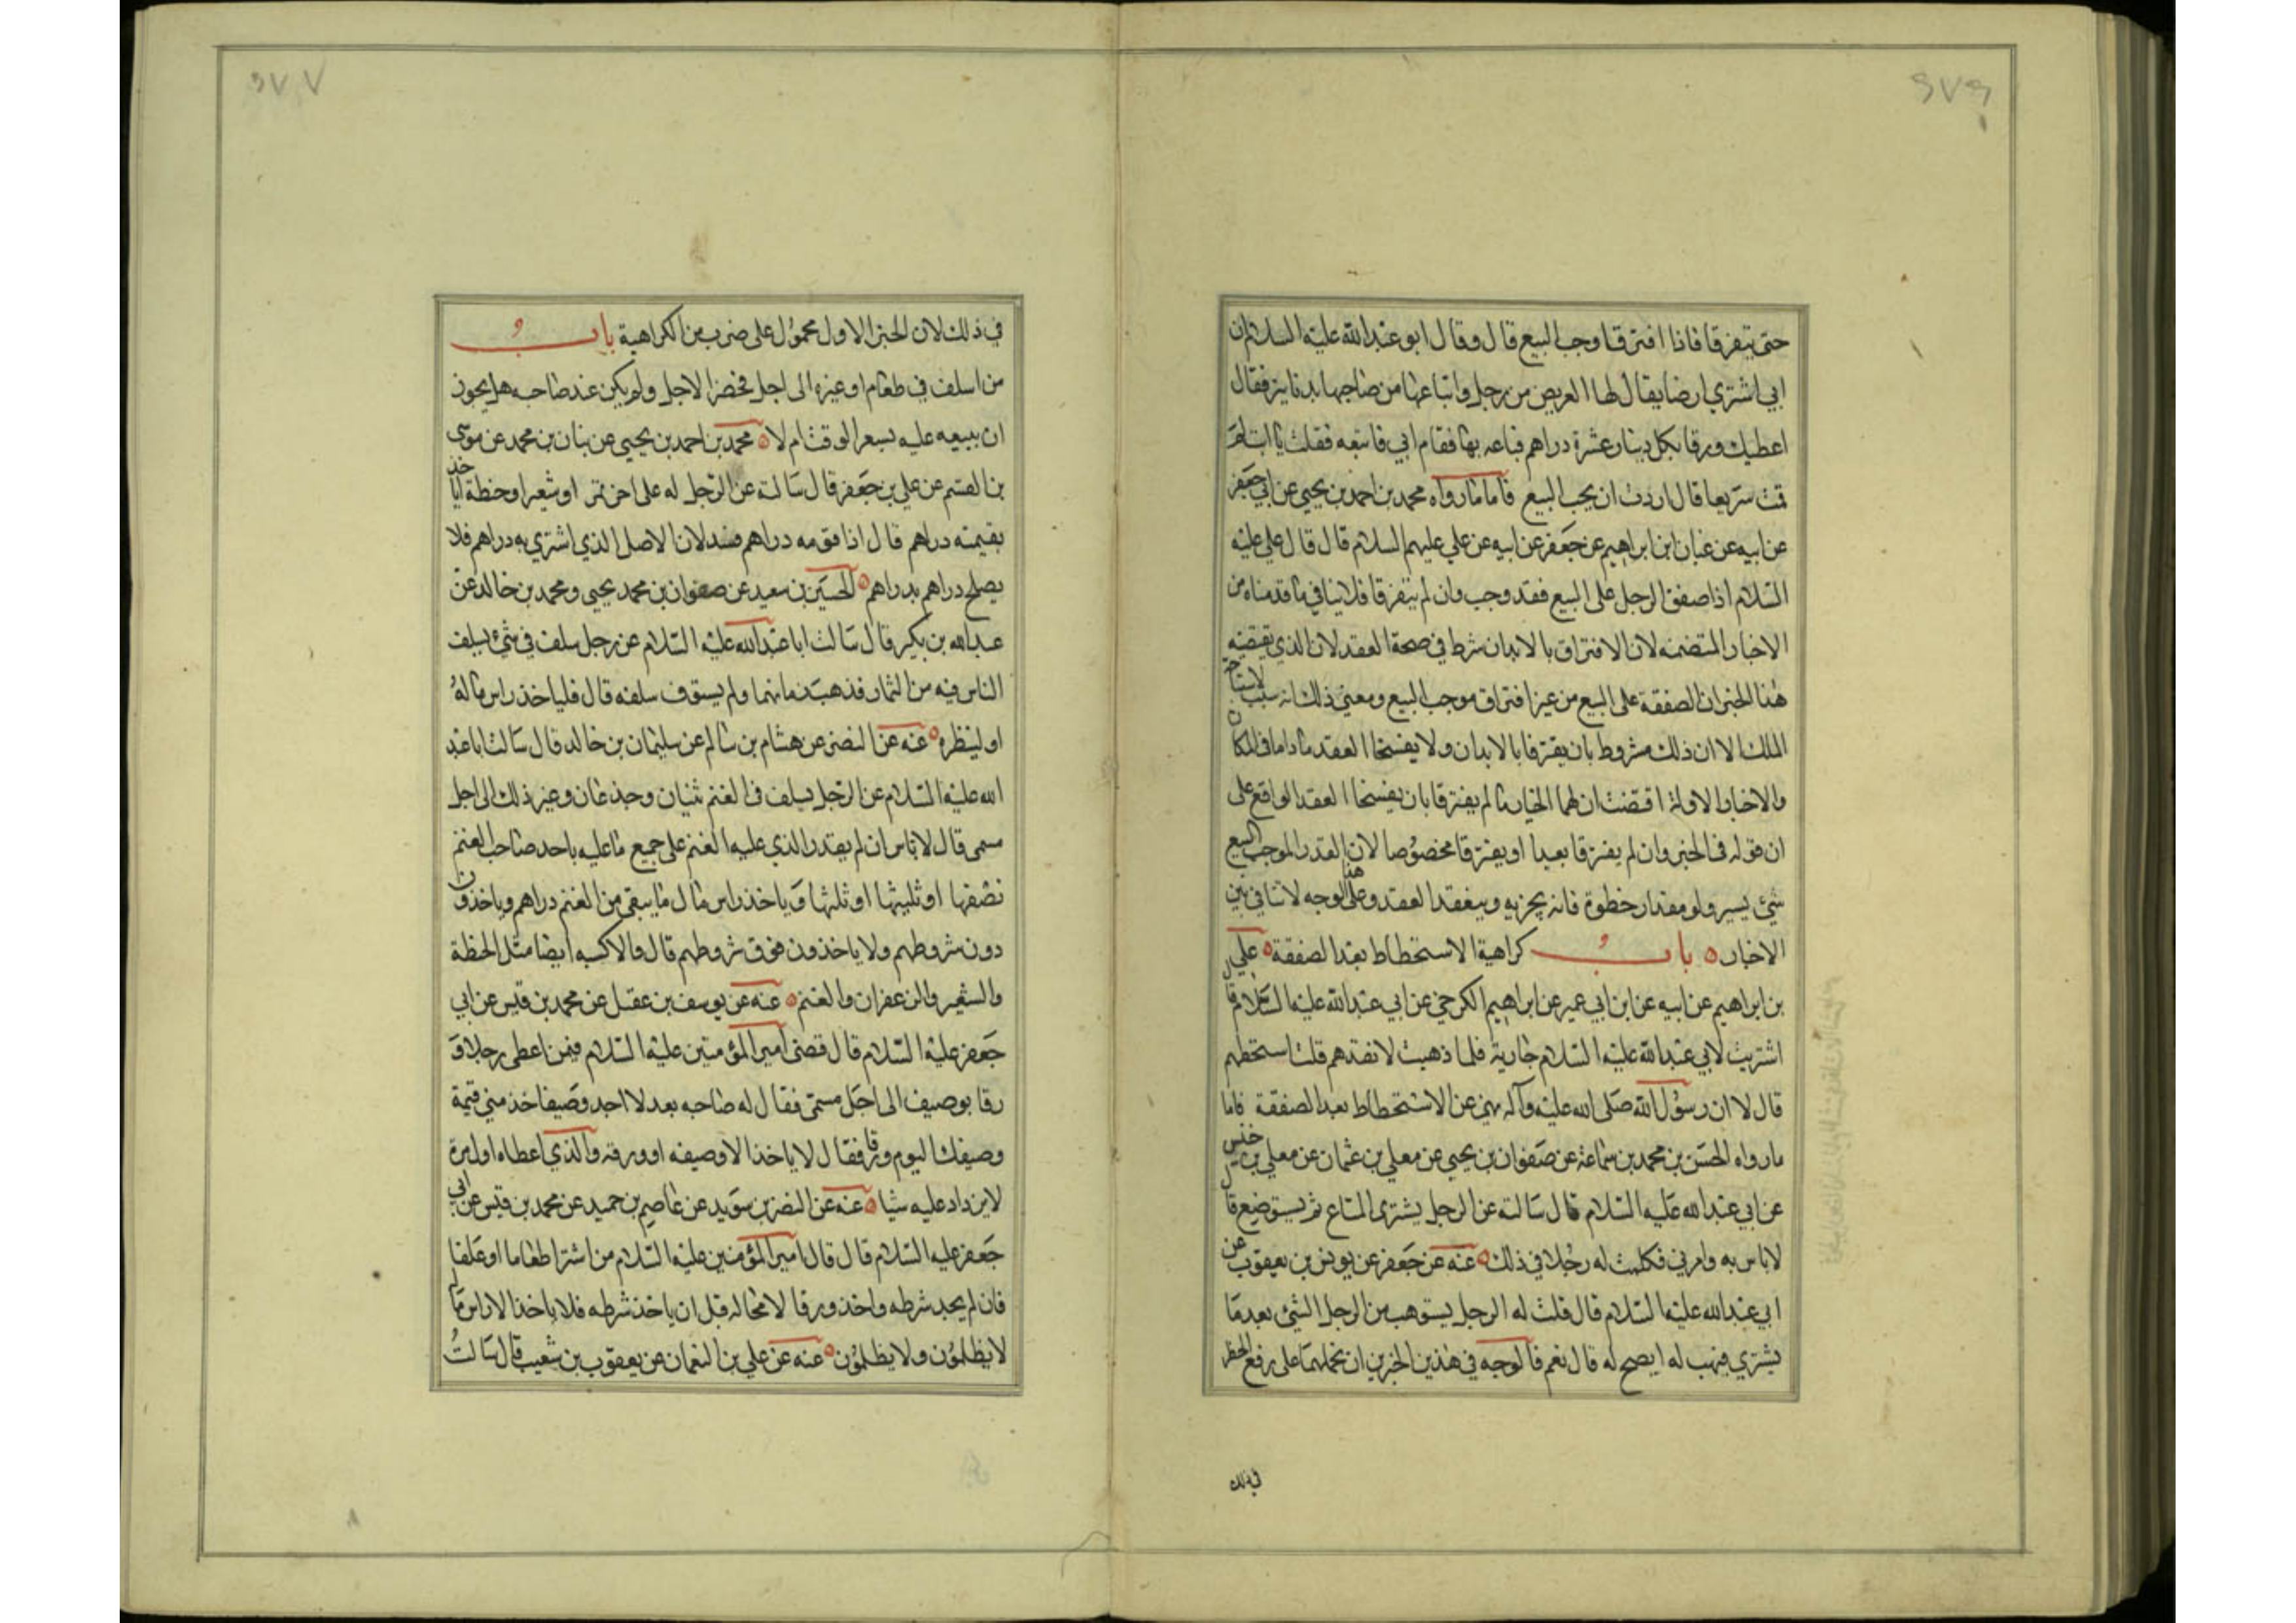 ٦٧٦
حتى يتفرقا فاذا افترقا وجب البيع قال وقال ابو عبد الله عليه السلام ان
ابي اشترى ارضا يقال لها العريض من رجل وابتاعها من صاحبها بدنانير فقال
اعطيك ورقا بكل دينار عشرة دراهم فباعه بها فقام ابي فاتبعه فقلت يا ابت لم
قمت سريعا قال اردت ان يجب البيع فاما ما رواه محمد بن احمد بن يحيى عن ابي جعفر
عن ابيه عن غياث ابن ابراهيم عن جعفر عن ابيه عن علي عليهم السلام قال قال علي عليه
السلام اذا صفق الرجل على البيع فقد وجب وان لم يتفرقا فلا ينافي ما قدمناه من
الاخبار المتضمنه لان الافتراق بالابدان شرط في صحة العقد لان الذي يقتضيه
هذا الخبر ان الصفقة على البيع من غير افتراق موجب البيع ومعنى ذلك انه سبب لاستباحة
الملك الا ان ذلك مشروط بان يفترقا بالابدان ولا يفسخا العقد ما داما في المكان
والاخبار الاولة اقتضت ان لهما الخيار ما لم يفترقا بان يفسخا العقد الواقع على
ان قوله في الخبر وان لم يفترقا بعيدا او يفترقا مخصوصا لان القدر الموجب للبيع
شيئ يسير ولو مقدار خطوة فانه يجزيه وينعقد العقد وعلى هذا الوجه لا تنافي بين
الاخبار باب كراهية الاستحطاط بعد الصفقة علي
بن ابراهيم عن ابيه عن ابن ابي عمير عن ابراهيم الكرخي عن ابي عبد الله عليه السلام قال
اشتريت لابي عبد الله عليه السلام جارية فلما ذهبت لانقدهم قلت استحطهم
قال لا ان رسول الله صلى الله عليه وآله نهى عن الاستحطاط بعد الصفقة فاما
ما رواه الحسن بن محمد بن سماعة عن صفوان بن يحيى عن معلى بن عثمان عن معلى بن خنيس
عن ابي عبد الله عليه السلام قال سالته عن الرجل يشترى المتاع ثم يستوضع قال
لا باس به وامرني فكلمت له رجلا في ذلك عنه عن جعفر عن يونس بن يعقوب عن
ابي عبد الله عليه السلام قال قلت له الرجل يستوهب من الرجل الشئ بعد ما
يشتري فيهب له ايصح له قال نعم فالوجه في هذين الخبرين ان نحملهما على رفع الحظر
في ذلك
٦٧٧
في ذلك لان الخبر الاول محمول على ضرب من الكراهية باب
من اسلف في طعام او غيره الى اجل فحضر الاجل ولم يكن عند صاحبه هل يجوز
ان يبيعه عليه بسعر الوقت ام لا محمد بن احمد بن يحيى عن بنان بن محمد عن موسى
بن القسم عن علي بن جعفر قال سالته عن الرجل له على اخر تمر او شعير او حنطة اياخذ
بقيمته دراهم قال اذا قومه دراهم فسد لان الاصل الذي اشتري به دراهم فلا
يصلح دراهم بدراهم الحسين بن سعيد عن صفوان بن محمد يحيى ومحمد بن خالد عن
عبد الله بن بكير قال سالت ابا عبد الله عليه السلام عن رجل سلف في شئ يسلف
الناس فيه من الثمار فذهب زمانها ولم يستوف سلفه قال فلياخذ راس ماله
او لينظره عنه عن النضر عن هشام بن سالم عن سليمان بن خالد قال سالت ابا عبد
الله عليه السلام عن الرجل يسلف في الغنم ثنيان وجذعان وغير ذلك الى اجل
مسمى قال لا باس ان لم يقدر الذي عليه الغنم على جميع ما عليه ياخذ صاحب الغنم
نصفها او ثلثيها او ثلثها وياخذ راس مال ما يبقى من الغنم دراهم وياخذون
دون شروطهم ولا ياخذون فوق شروطهم قال والاكسيه ايضا مثل الحنطة
والشعير والزعفران والغنم عنه عن يوسف بن عقيل عن محمد بن قيس عن ابي
جعفر عليه السلام قال قضى امير المؤمنين عليه السلام فيمن اعطى رجلا و
رقا بوصيف الى اجل مسمى فقال له صاحبه بعد لا اجد وصيفا خذ مني قيمة
وصيفك اليوم ورقا فقال لا ياخذ الا وصيفه او ورقه والذي اعطاه اول مرة
لا يزداد عليه شيئا عنه عن النضر بن سويد عن عاصم بن حميد عن محمد بن قيس عن ابي
جعفر عليه السلام قال قال امير المؤمنين عليه السلام من اشترا طعاما او علفا
فان لم يجد شرطه واخذ ورقا لا محاله قبل ان ياخذ شرطه فلا ياخذ الا راس ماله
لا يظلمون ولا يظلمون عنه عن علي بن النعمان عن يعقوب بن شعيب قال سالت